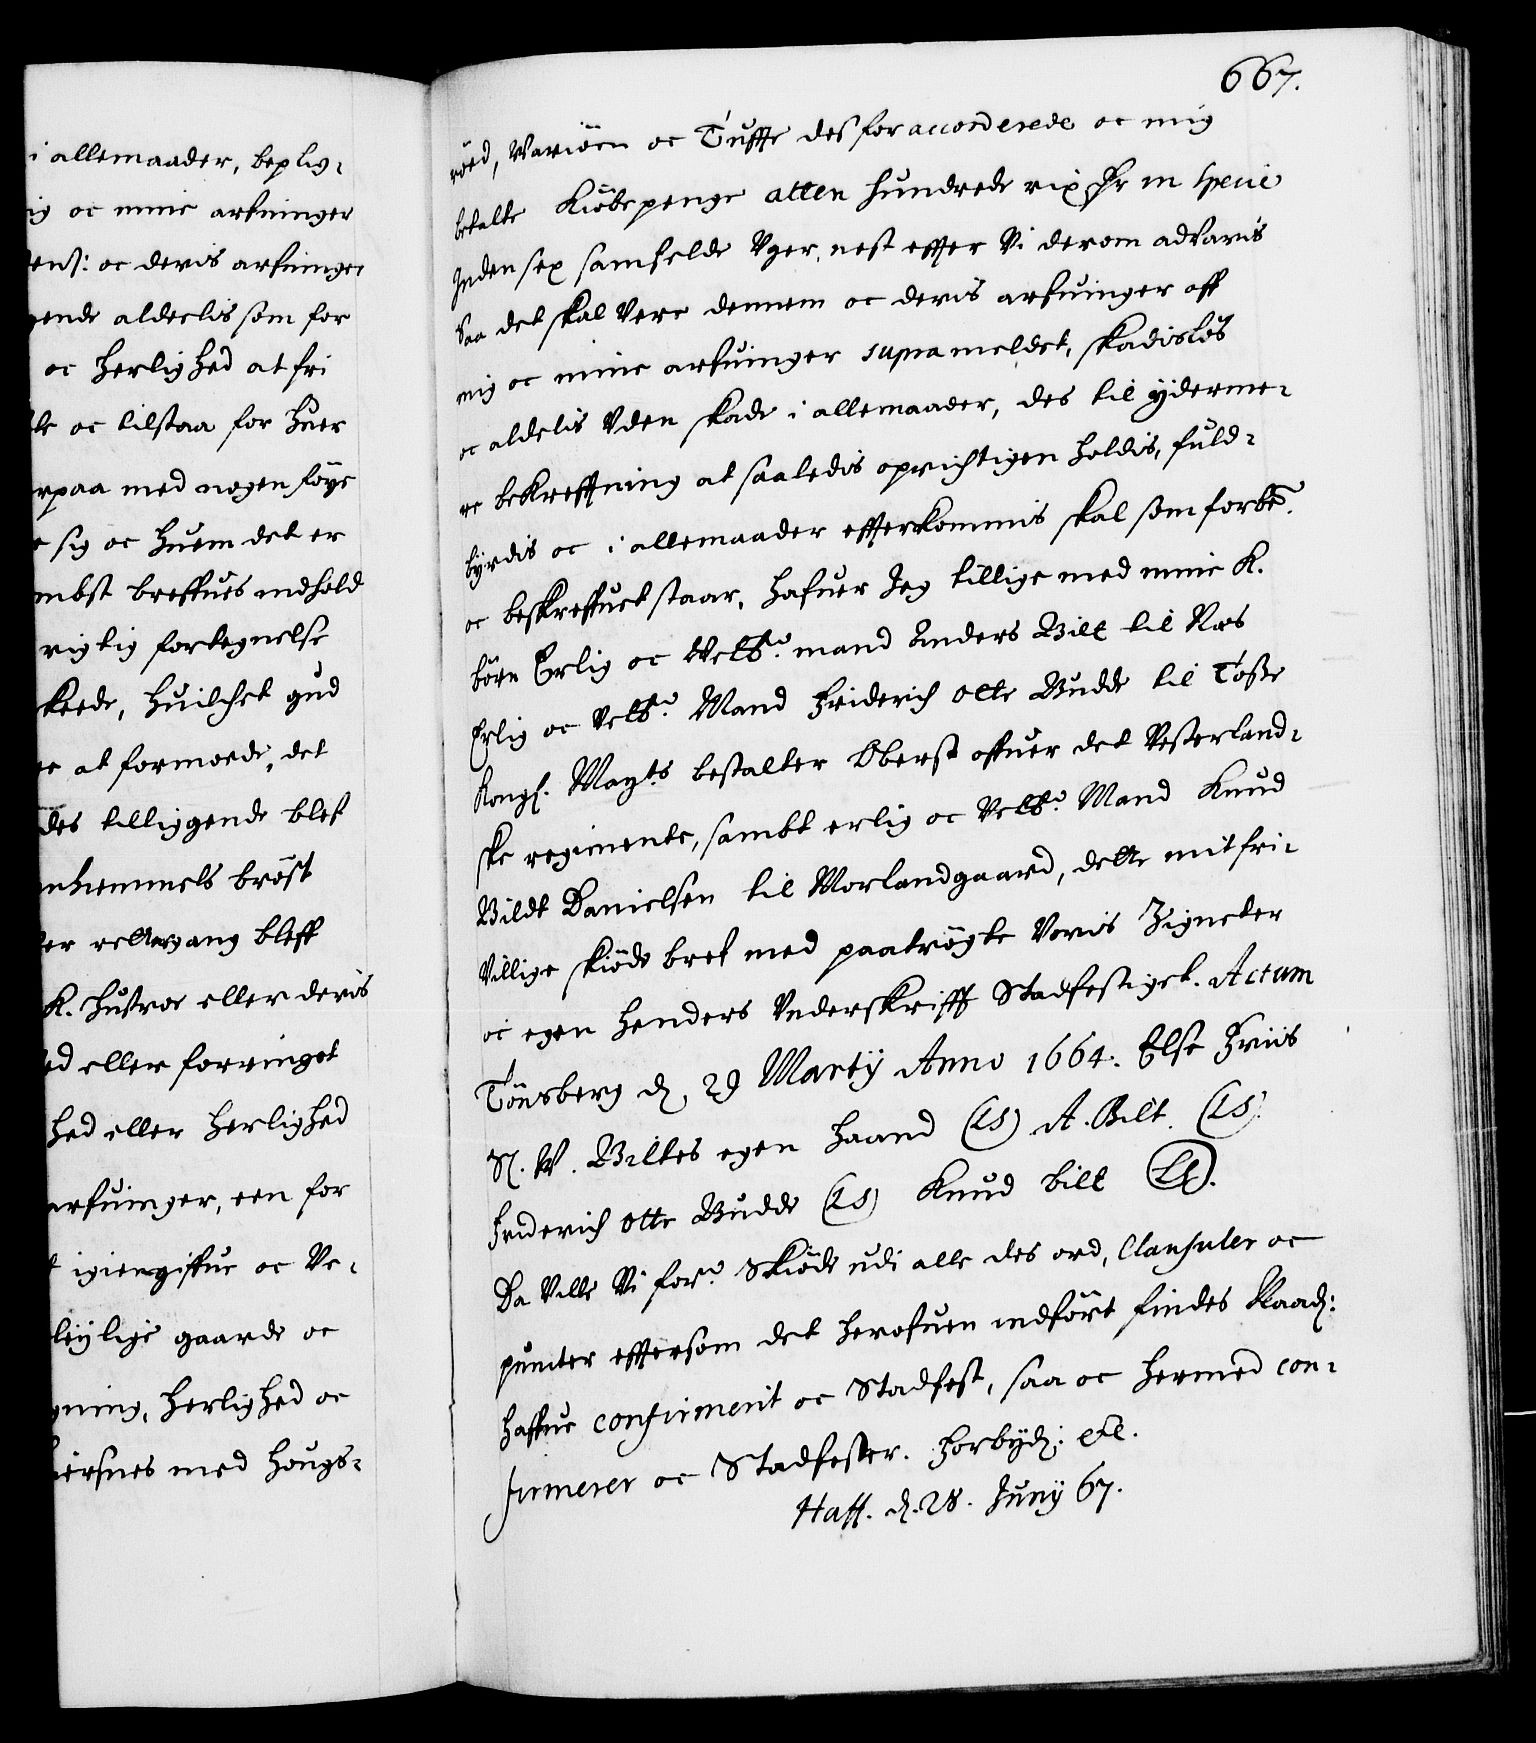 i allemaader, beplig-
ig oc mine arfuinger
dens: oc deris arfuinger
gende aldelis som for
oc herlighed at fri
de oc tilstaa for huer
rpaa med nogen föye
e sig oc huem det er
mbst breffues indhold
rigtig fortegnelse
skeede, huilchet gud
ee at formoede, det
des tilliggende blef
nhiemmels bröst
der rettergang bleff
K. hustroe eller deris
ed eller forringet
hed eller herlighed
arfuinger, een for
t igiengiffue oc Ve-
leylige gaarde oc
gning, herlighed oc
iersnes med hougs-
667.
röed, Wariöen oc Tuffte des for accorderede oc mig
betalte Kiöbspenge atten hundrede rixdlr in specie
Inden sex samfelde Vger, nest effter Vi derom advaris
Saa det skal Vere dennem oc deris arfuinger aff
mig oc mine arfuinger supra meldet, skadislös
oc aldelis Vden skade i allemaader, des til yderme-
re bekrefftning at saaledis oprichtigen holdis, fuld-
byrdis oc i allemaader effterkommis skal som forbe.
oc beskreffuet staar, hafuer Jeg tillige med mine K.
börn Erlig oc Velb. mand Anders Bilt til Næs
Erlig oc Velb. Mand Friderich Otte Budde til Tosse
Kongl. Mayts bestalter Oberst offuer det Vesterland-
ske regimente, sambt erlig oc Velb. Mand Knud
Bildt Danielsen til Morlandgaard, dette mit fri-
Villige skiöde bref med paatrögte Voris Zigneter
oc egen henders Vnderskrifft Stadfestiget. Actum
Tönsberg d. 29 Martij Anno 1664. Else Friis
Sl. W. Biltes egen haand (LS) A. Bilt. (LS)
Friderich Otte Budde (LS) Knud bilt (LS).
Da Ville Vi for. Skiöde udi alle des ord, Clausuler oc
puncter effersom det herofuen indfört findes Naad:
haffue confirmerit oc Stadfest, saa oc hermed con-
firmerer oc Stadfester. Forbyd: etc.
Haff. d. 28. Junij 67.